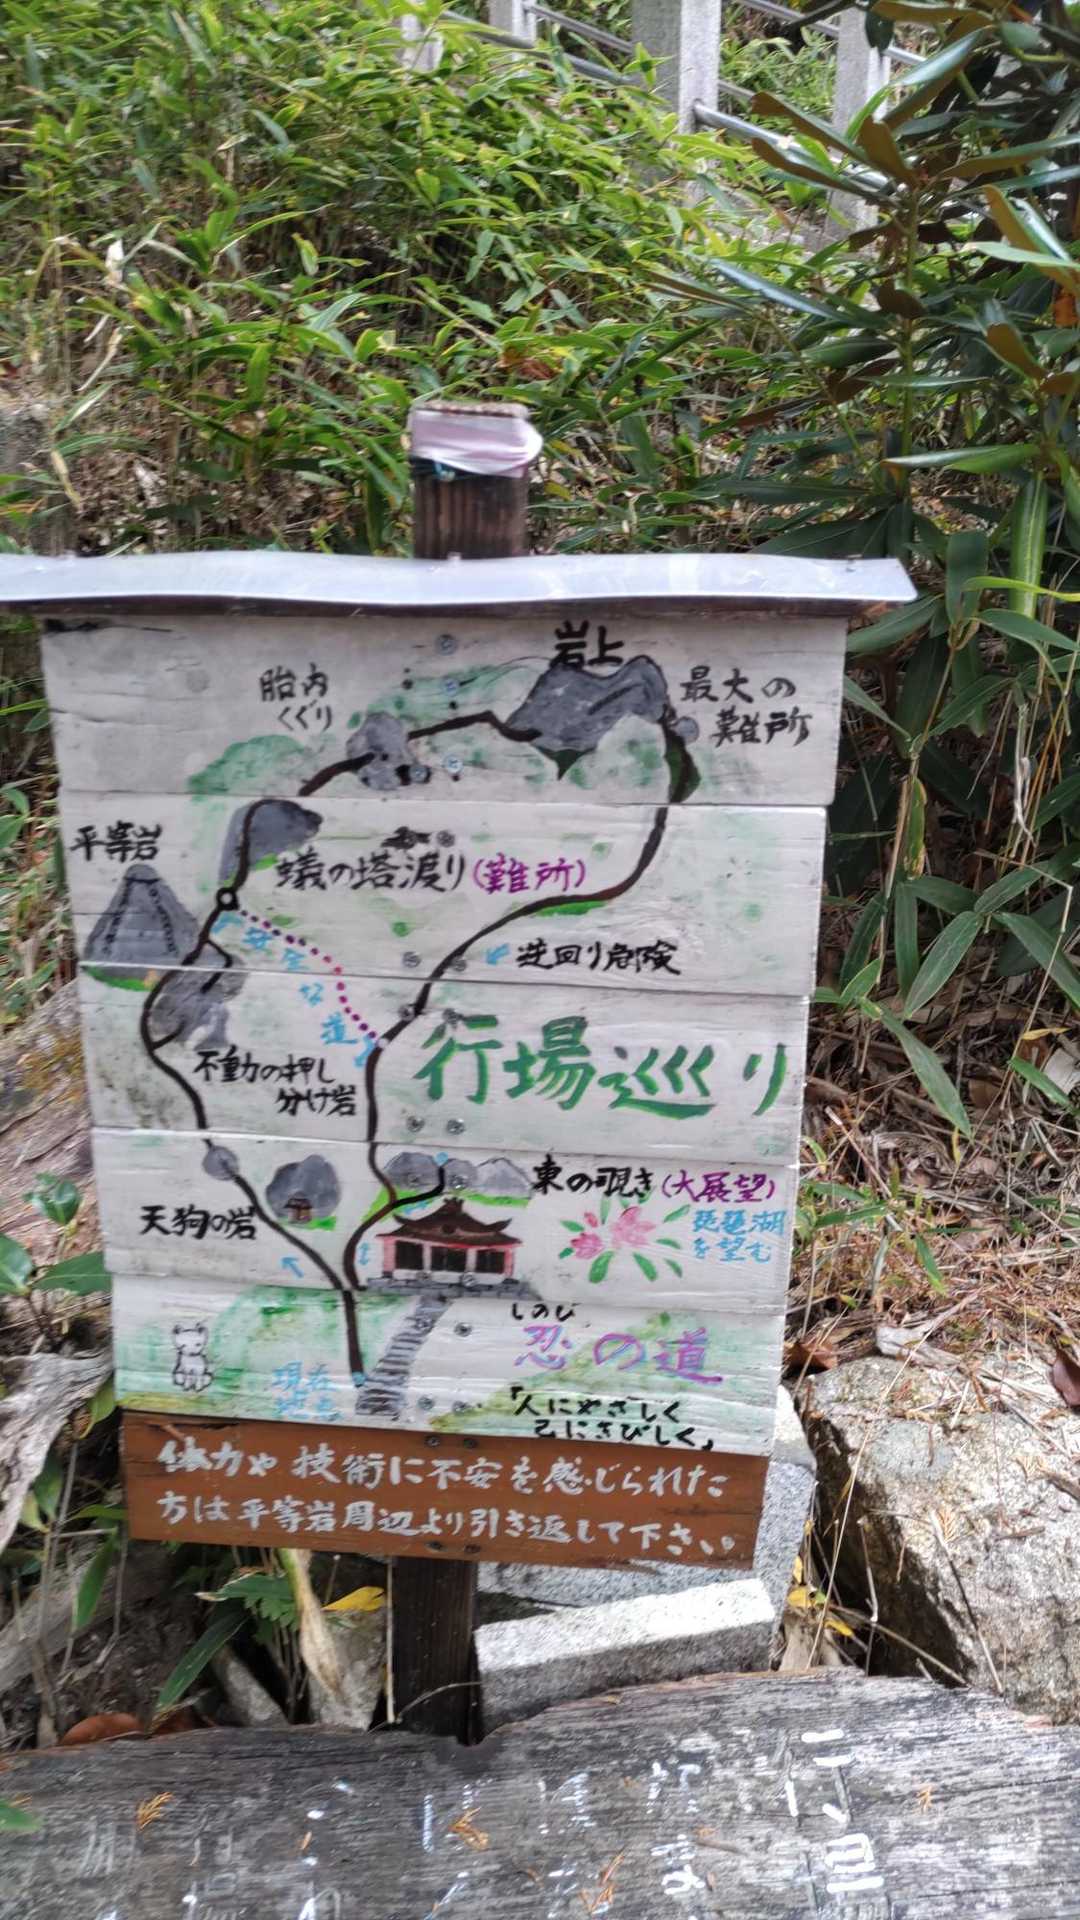 岩上
胎内
くぐり
最大の
難所
平等岩
蟻の塔渡り(難所)
安全な道
逆回り危険
行場巡り
不動の押し
分け岩
東の覗き(大展望)
琵琶湖
を望む
天狗の岩
しのび
忍の道
現在
地点
「人にやさしく
己にきびしく」
体力や技術に不安を感じられた
方は平等岩周辺より引き返して下さい。